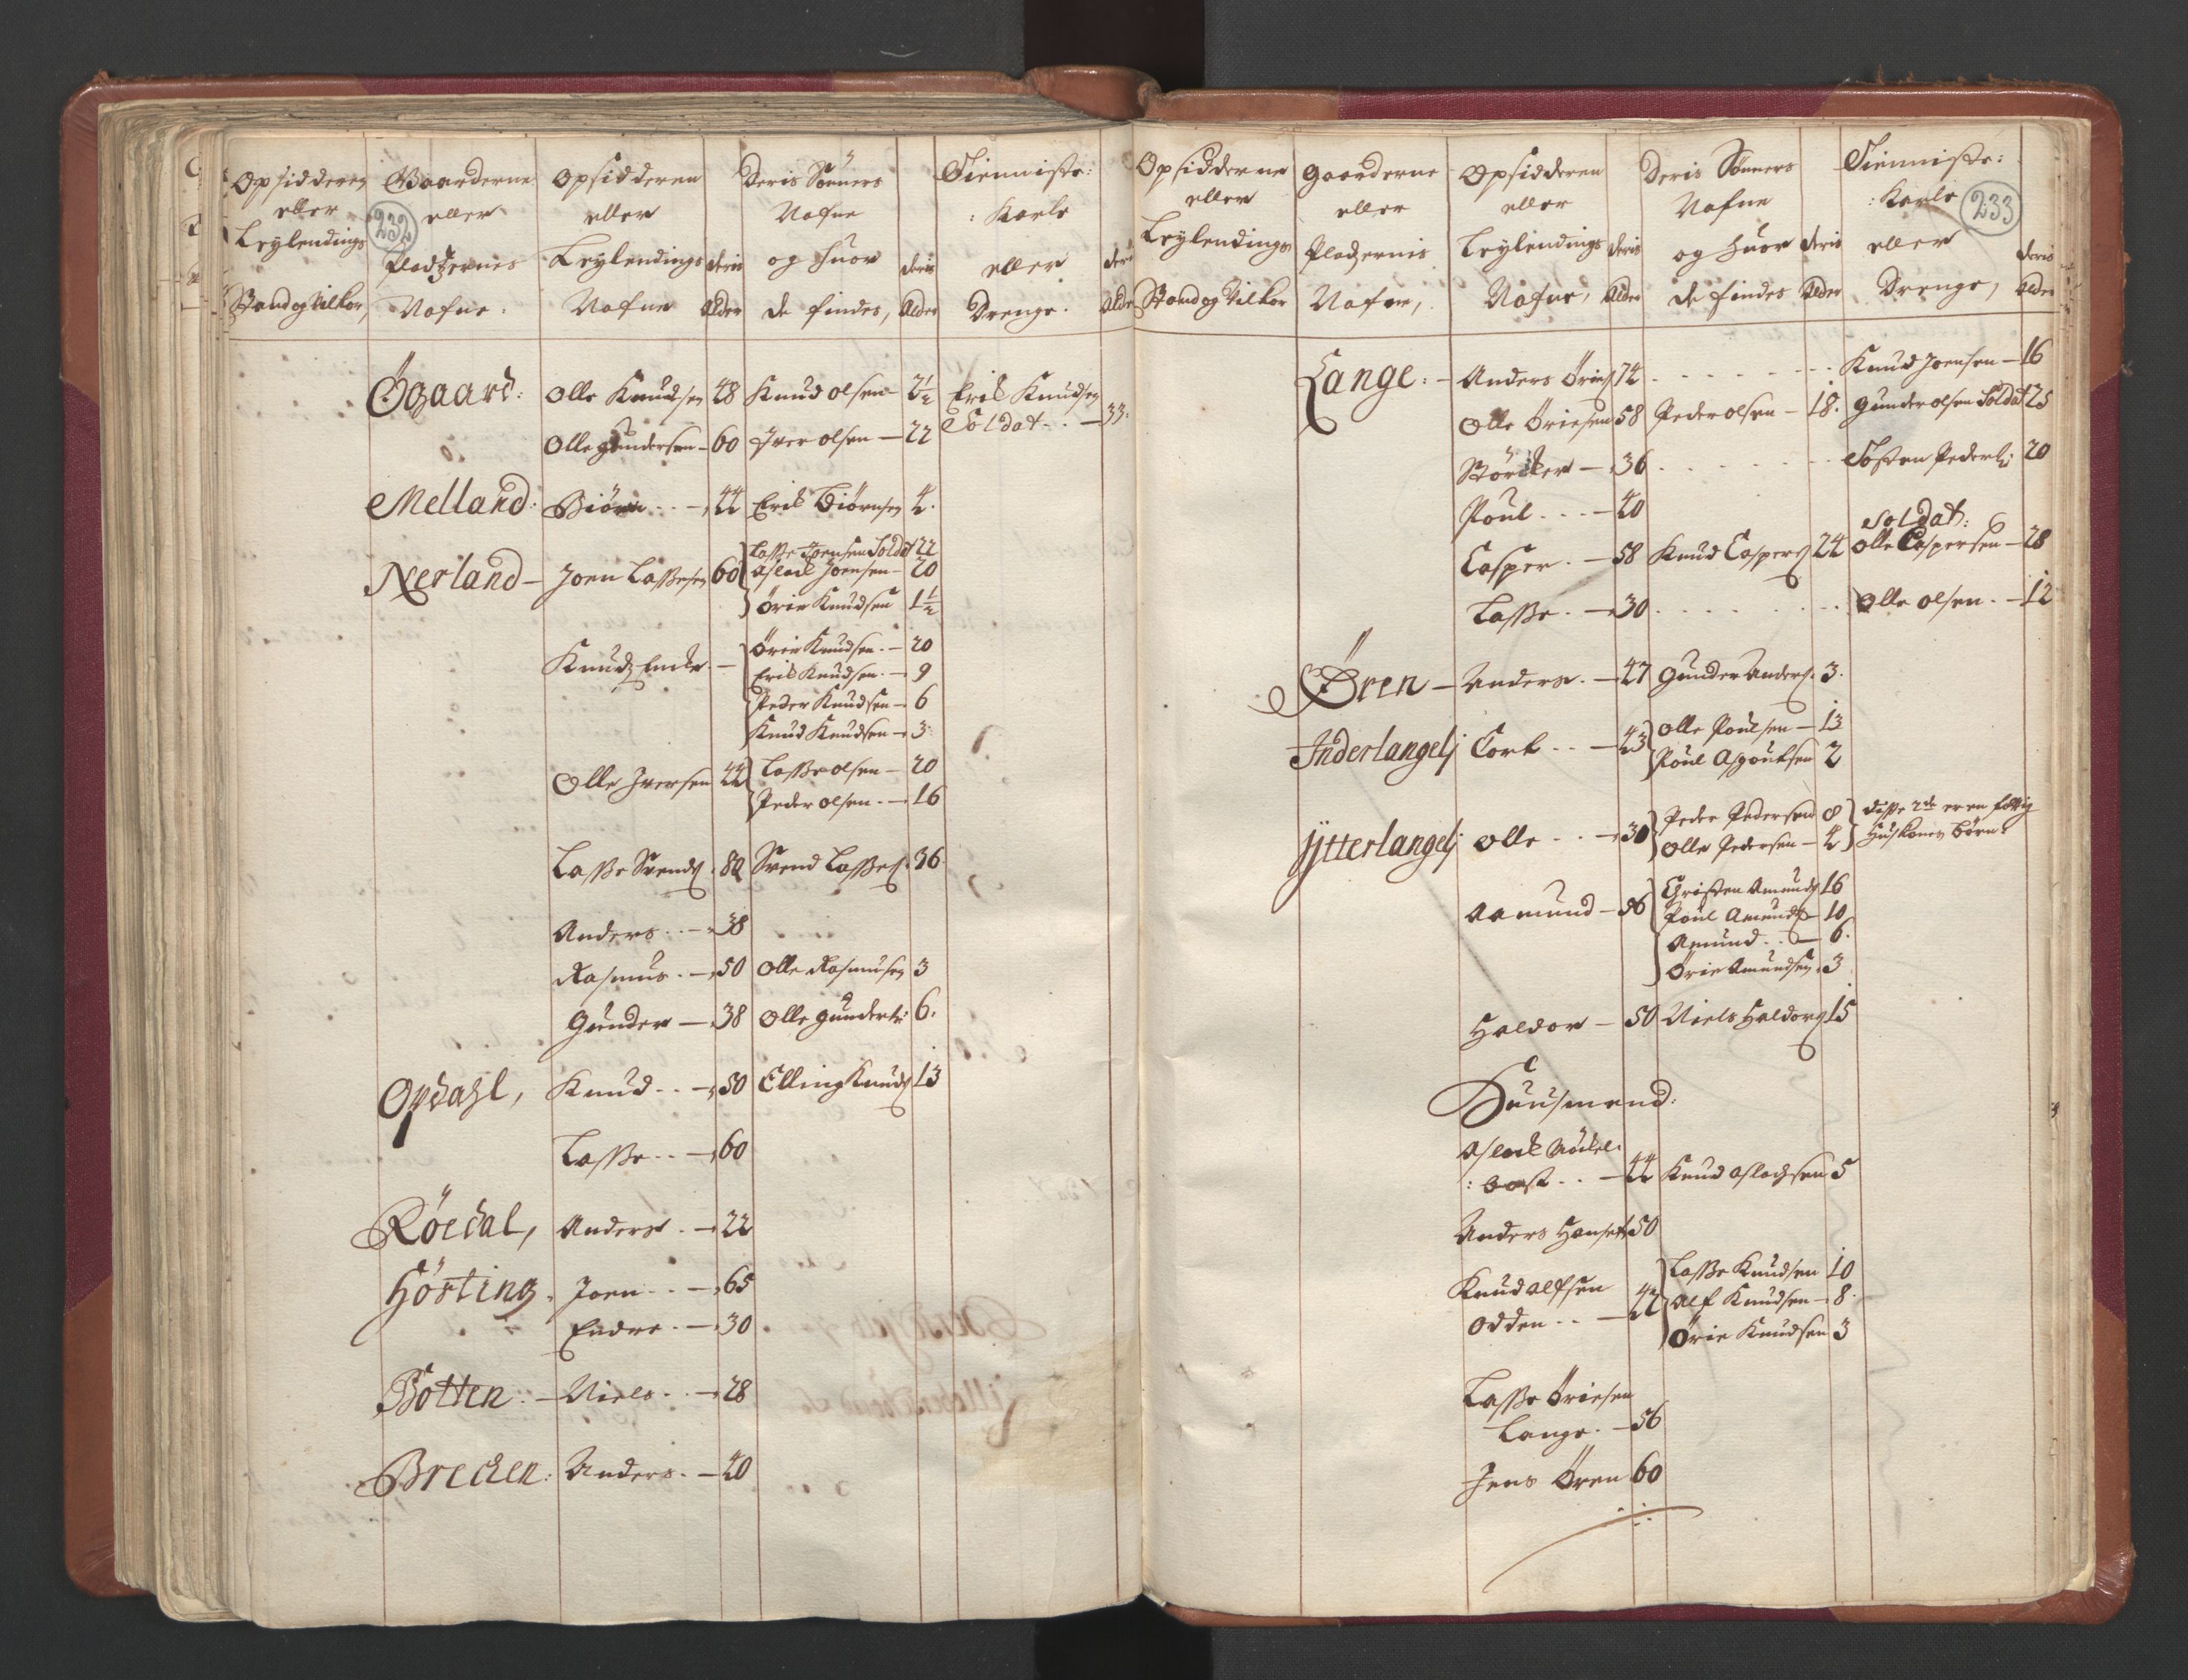 232
Opsidderen eller Leylendings Stand og Vilkor,
Gaarderne eller Pladzernes Nafne.
Opsidderen eller Leylendings Nafne
deris Alder
Deris Sønners Nafne og huor de findes,
deris Alder
Tienniste: :Karle eller Drenge.
deris Alder
Øgaard: Olle Knudsen 48 Knud olsen 2½ Erik Knudsen
Soldat - 33:
Olle gundersen - 60 Iver olsen - 22
Melland: Biørn - 44 Erik Biørnsen 4.
Nerland - Joen Lassesen 60 Lasse Joensen Soldat 22
Aslak Joensen - 20
Ørie Knudsen 1½
Knudz Encke - Ørie Knudsen - 20
Erik Knudsen - 9
Peder Knudsen - 6
Knud Knudsen - 3
Olle Iversen 44 Lasse olsen - 20
Peder olsen - 16
Lasse Svends. 80 Svend Lasses. 36
Anders - 38
Rasmus - 50 Olle Rasmusen 3
Gunder - 38 Olle gunders: 6.
Opdahl, Knud - 50 Elling Knuds. 13
Lasse - 60
Röedal, Anders - 22
Hösting. Joen - 65
Endre - 30
Botten: - Niels - 28
Brecken: Anders - 40
233
Opsidderne eller Leylendings Stand og Vilkor
Gaarderne eller Pladzernis Nafne,
Opsidderen eller Leylendings Nafne,
deris Alder
Deris Sønners Nafne og huor de findes
deris Alder
Tienniste: :Karle eller Drenge,
deris Alder
Lange: - Anders Öries. 74 Knud Joensen - 16
Olle Öriesen 58 Peder olsen - 18. gunder olsen Soldat 25
Störcker - 36 Tosten Peders: 20
Poul - 40
Soldat:
Casper - 58 Knud Caspers. 24 Olle Caspersen - 28
Lasse - 30 Olle olsen - 12
Øren - Anders - 47 Gunder Anders. 3.
Inderlangelj Cort - 43 Olle Poulsen - 13
Poul 2
Ytterlangelj Olle - 30 Peder Pedersen 8 disse 2de er en fattig
Olle Pedersen - 4 Huskones børn:
Aamund - 56 Christen Amunds. 16
Poul Amunds. - 10
Amund - 6.
Örie Amundsen 3
Haldor - 50 Niels Haldors. 15
Huusmend:
Aslak Nickel:
:bost - 44 Knud Aslachsen 5
Anders Hanset 50
Knud Alfsen
Odden - 42 Lasse Knudsen 10
Alf Knudsen - 8.
Örie Knudsen 3
Lasse Öriesen
Lange - 56
Jens Ören 60